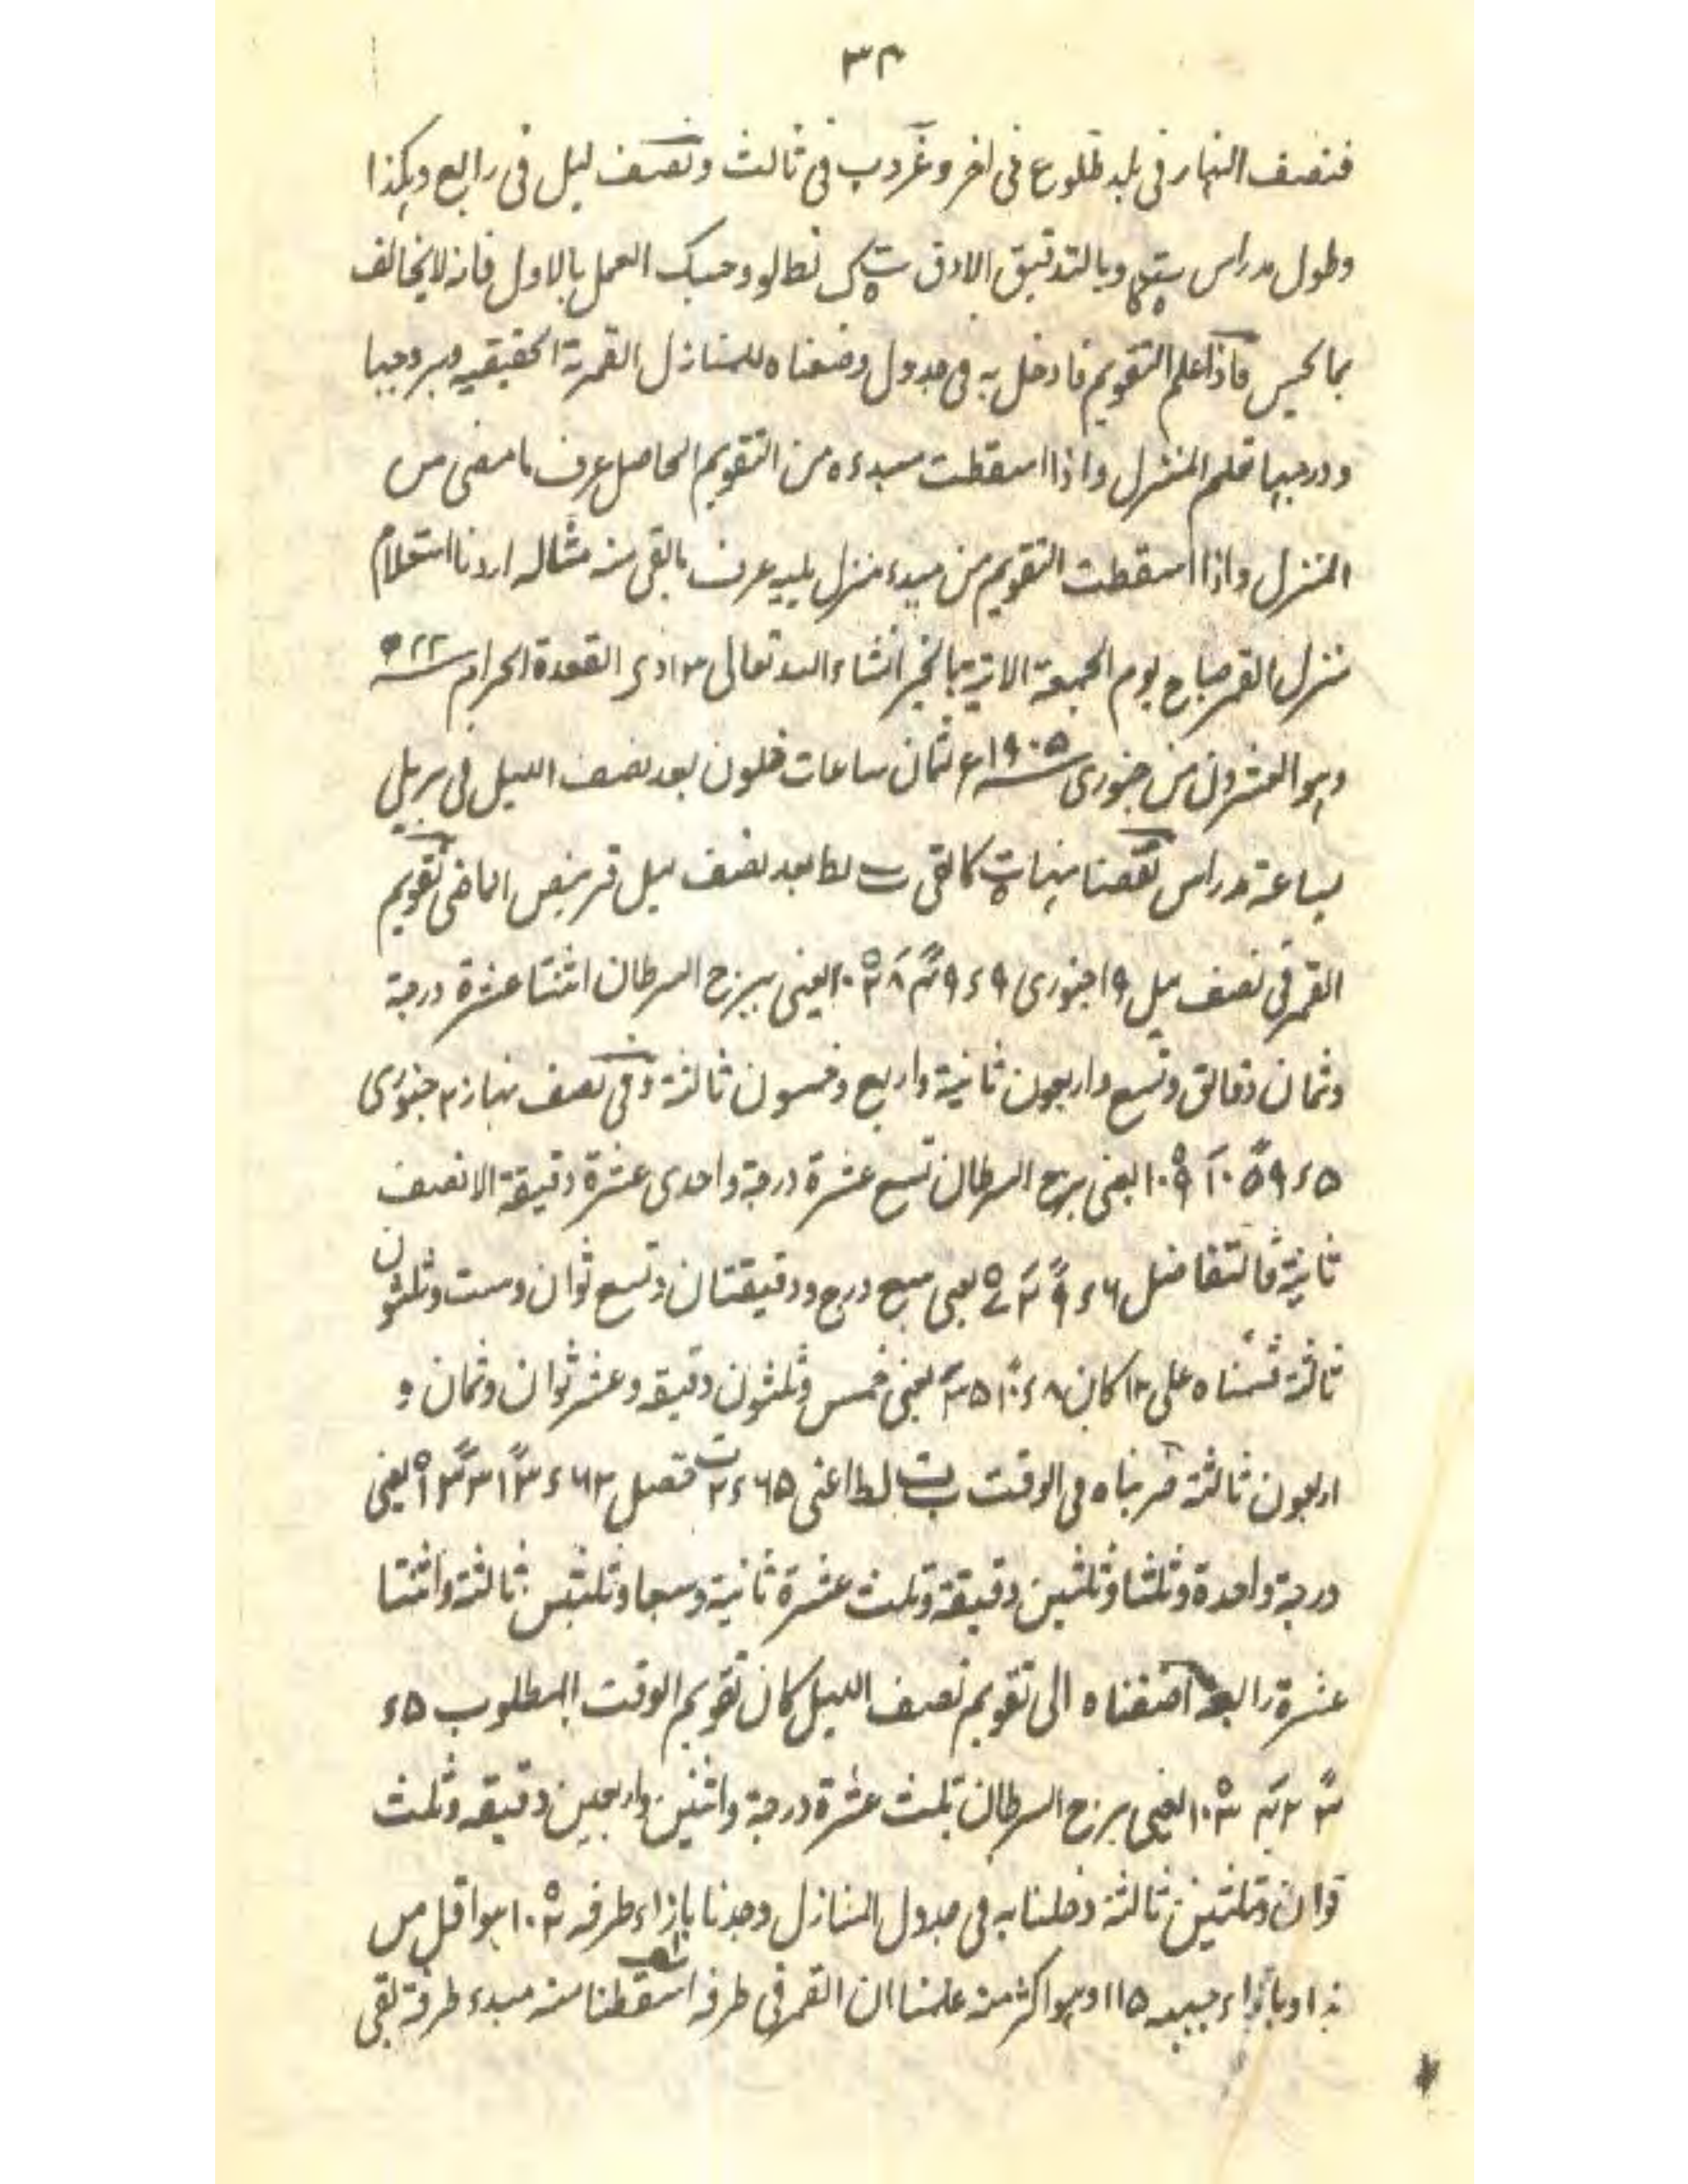 ٣٤
فنصف النهار فى بلد طلوع فى اخر وغروب فى ثالث ونصف ليل فى رابع وهكذا
وطول مدراس وبالتدقيق الادق وحسبك العمل بالاول فانه لا يخالف
بما يحس فاذا علم التقويم فادخل به فى جدول وضعناه للمنازل القمرية الحقيقيه ببروجها
ودرجها تعلم المنزل واذا اسقطت مبدءه من التقويم الحاصل عرف ما مضى من
المنزل واذا اسقطت التقويم من مبدء منزل يليه عرف ما بقى منه مثاله اردنا استعلام
منزل القمر صباح يوم الجمعة الاتية بالخير انشاء الله تعالى ذى القعدة الحرام سنه ٢٢ ھ
وهو العشرون من جنورى سنه ١٩٠٥ء لثمان ساعات خلون بعد نصف الليل فى بريلى
بساعة مدراس نقصنا منها كا بقى لط بعد نصف ليل قر الماضى تقويم
القمر فى نصف ليل ١٩ جنورى يعنى ببرج السرطان اثنتا عشرة درجة
وثمان دقائق وتسع واربعون ثانية واربع وخمسون ثالثة وفى نصف نهار ٢٠ جنورى
يعنى برج السرطان تسع عشرة درجة واحدى عشرة دقيقة الا نصف
ثانية فالتفاضل يعنى سبع درج ودقيقتان وتسع ثوان وست وثلثون
ثالثة قسمناه على ١٢ كان يعنى خمس وثلثون دقيقه وعشر ثوان وثمان و
اربعون ثالثة ضربناه فى الوقت لط اعنى ٢ء٦٥ فحصل يعنى
درجة واحدة وثلثا وثلثين دقيقة وثلث عشرة ثانية وسبعا وثلثين ثالثة واثنتا
عشرة رابعة اضفناه الى تقويم نصف الليل كان تقويم الوقت المطلوب ء٥
يعنى برج السرطان ثلث عشرة درجة واثنين واربعين دقيقه وثلث
ثوان وثلثين ثالثة دخلنا به فى جدول المنازل وجدنا بازاء طرفه ١٠٣ هو اقل من
هذا وبازاء جبهه ١١٥ وهو اكثر منه علمنا ان القمر فى طرفه اسقطنا منه مبدء طرفة بقى